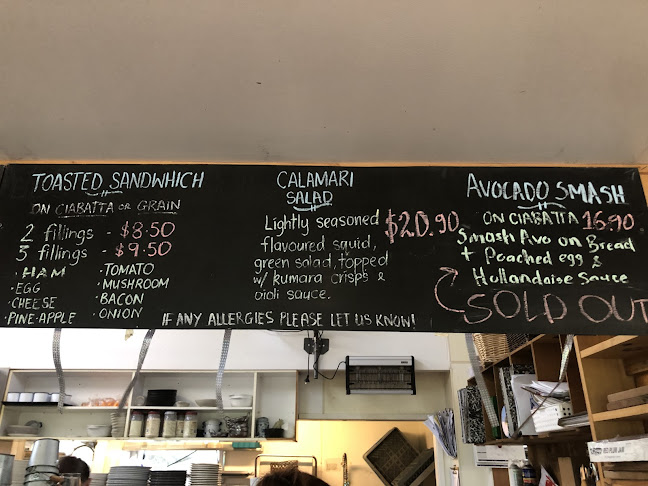 TOASTED SANDWHICH
ON CIABATTA OR GRAIN
2 fillings - $8.50
3 fillings - $9.50
· HAM
· EGG
· CHEESE
· PINE-APPLE
· TOMATO
· MUSHROOM
· BACON
· ONION
CALAMARI
SALAD
Lightly seasoned
flavoured squid,
green salad, topped
w/ kumara crisps &
oioli sauce.
$20.90
IF ANY ALLERGIES PLEASE LET US KNOW!
AVOCADO SMASH
ON CIABATTA 16.90
Smash Avo on Bread
+ Poached egg &
Hollandaise Sauce
SOLD OUT